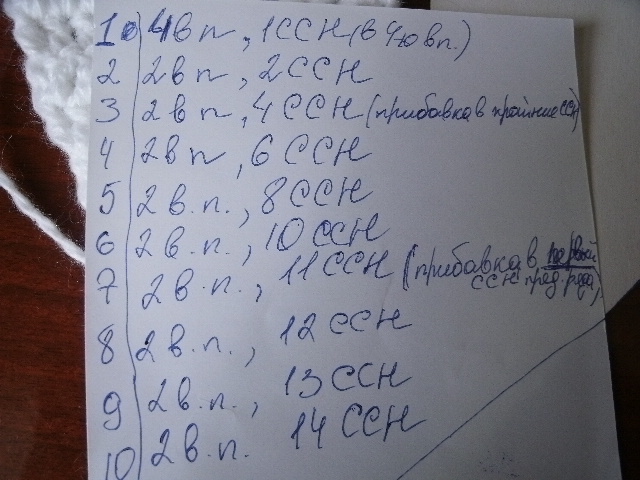 1. 4 в п, 1 ССН (в 4ю вп.)
2 2 в п, 2 ССН
3 2 в п, 4 ССН (прибавка в крайние ССН)
4 2 в п, 6 ССН
5 2 в.п., 8 ССН
6 2 в.п., 10 ССН
7 2 в.п., 11 ССН (прибавка в первый
ССН пред. ряда)
8 2 в.п., 12 ССН
9 2 в.п., 13 ССН
10 2 в.п. 14 ССН